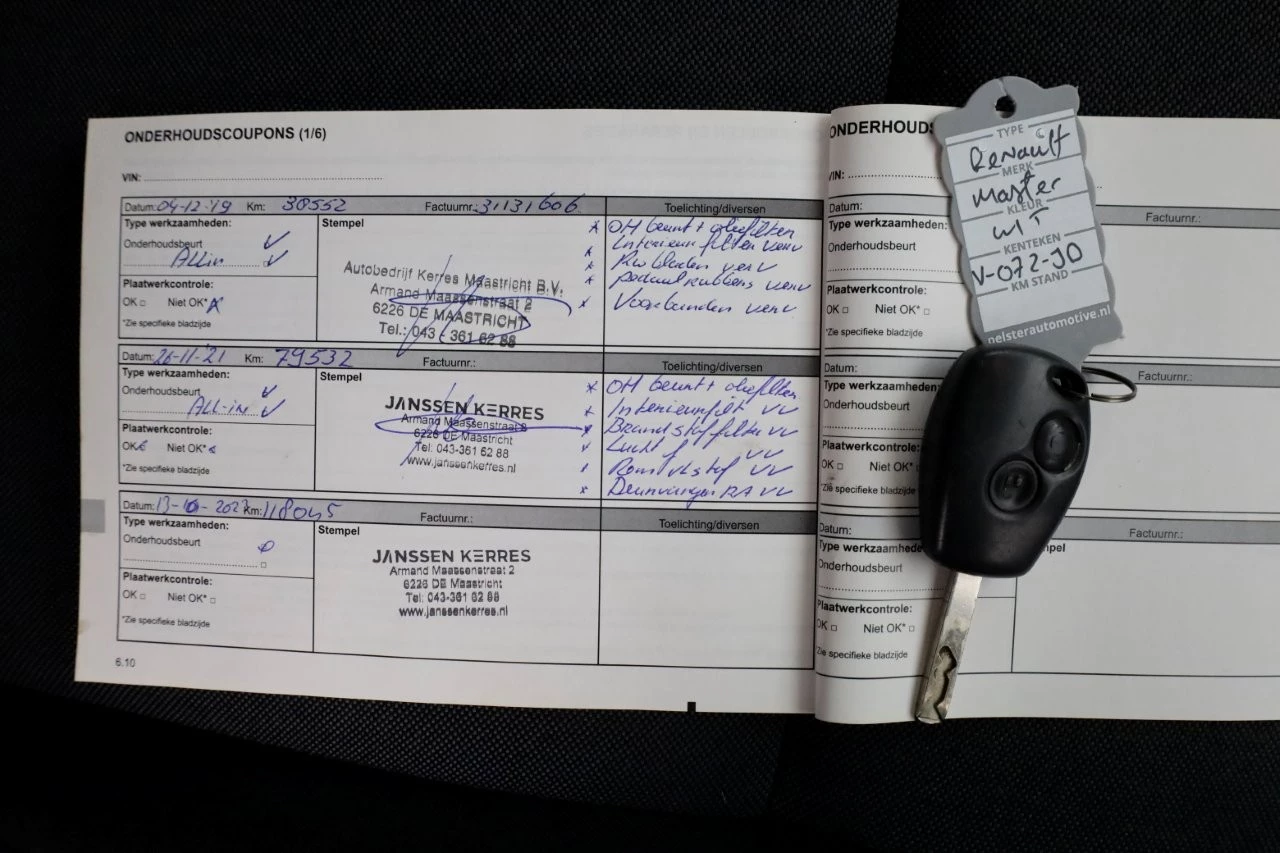 ONDERHOUDSCOUPONS (1/6)
VIN:
Datum: 04-12-'19 Km: 38552 Factuurnr.: 31131606 Toelichting/diversen
Type werkzaamheden:
Onderhoudsbeurt
All in
Plaatwerkcontrole:
OK Niet OK*
*Zie specifieke bladzijde
Stempel
Autobedrijf Kerres Maastricht B.V.
Armand Maassenstraat 2
6226 DE MAASTRICHT
Tel.: 043 - 361 62 88
OH beurt + oliefilter
Interieur filter verv
Rw bladen verv
pedaalrubbers verv
Voorbanden verv
Datum: 26-11-'21 Km: 79532 Factuurnr.: Toelichting/diversen
Type werkzaamheden:
Onderhoudsbeurt
ALL-in
Plaatwerkcontrole:
OK Niet OK*
*Zie specifieke bladzijde
Stempel
JANSSEN KERRES
Armand Maassenstraat 2
6226 DE Maastricht
Tel: 043-361 62 88
www.janssenkerres.nl
OH beurt + oliefilter
Interieurfilt VV
Brandstoffilter VV
Lucht VV
Remvlstof VV
RA VV
Datum: 13-10-2023 Km: 118045 Factuurnr.: Toelichting/diversen
Type werkzaamheden:
Onderhoudsbeurt
Plaatwerkcontrole:
OK Niet OK*
*Zie specifieke bladzijde
Stempel
JANSSEN KERRES
Armand Maassenstraat 2
6226 DE Maastricht
Tel: 043-361 62 88
www.janssenkerres.nl
6.10
ONDERHOUDS
VIN:
Datum: Factuurnr.:
Type werkzaamheden:
Onderhoudsbeurt
Plaatwerkcontrole:
OK Niet OK*
*Zie specifieke bladzijde
Datum: Factuurnr.:
Type werkzaamheden:
Onderhoudsbeurt
Plaatwerkcontrole:
OK Niet OK*
*Zie specifieke bladzijde
Datum: Factuurnr.:
Type werkzaamhede
Onderhoudsbeurt
Plaatwerkcontrole:
OK Niet OK*
*Zie specifieke bladzijde
mpel
TYPE
Renault
MERK
Master
KLEUR
WIT
KENTEKEN
V-072-JO
KM STAND
pelsterautomotive.nl